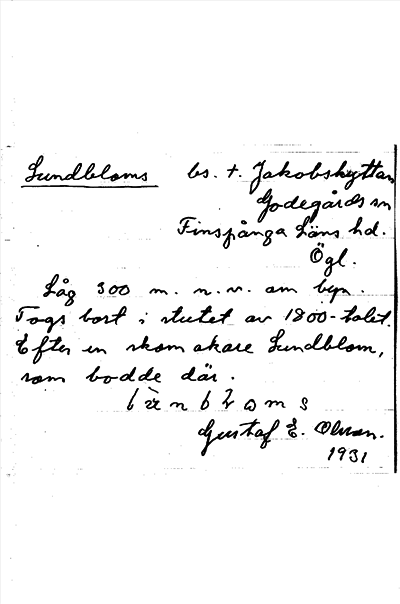 Lundbloms bs. t. Jakobshyttan
Godegårds sn
Finspånga läns hd.
Ögl.
Låg 300 m. n. v. om byn.
Togs bort i slutet av 1800-talet.
Efter en skomakare Lundblom,
som bodde där.
Gustaf E. Olsson.
1931